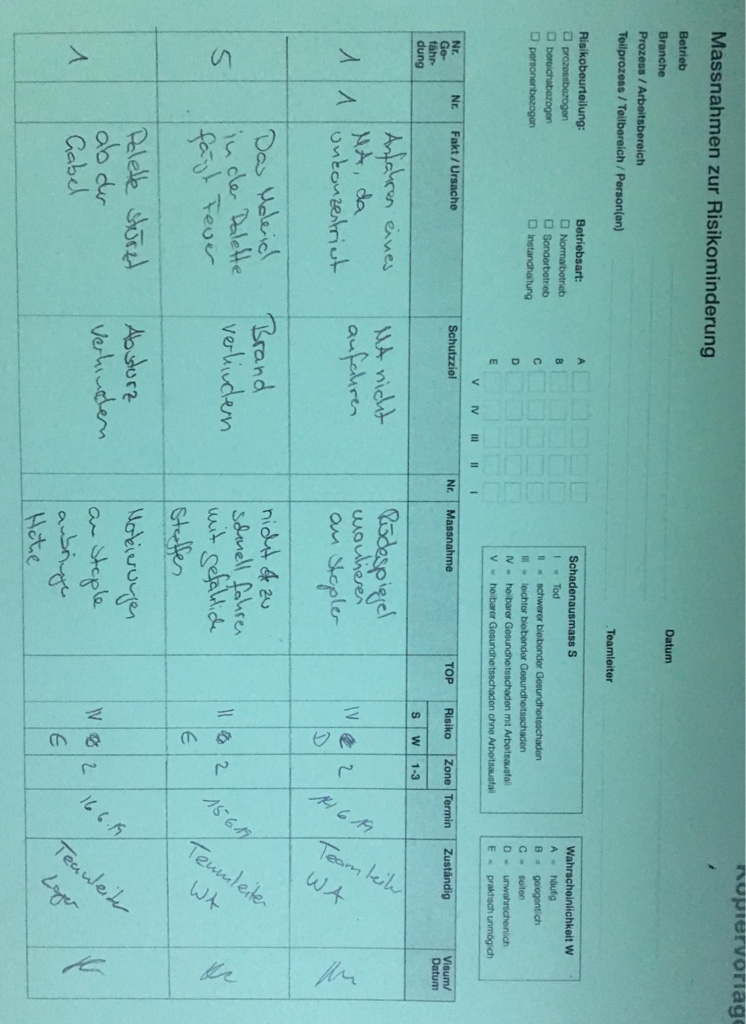 Kopiervorlage
Massnahmen zur Risikominderung
Betrieb
Branche
Datum
Prozess / Arbeitsbereich
Teilprozess / Teilbereich / Person(en)
Teamleiter
Risikobeurteilung:
☐ prozessbezogen
☐ bereichsbezogen
☐ personenbezogen
Betriebsart:
☐ Normalbetrieb
☐ Sonderbetrieb
☐ Instandhaltung
A
B
C
D
E
V IV III II I
Schadenausmass S
I = Tod
II = schwerer bleibender Gesundheitsschaden
III = leichter bleibender Gesundheitsschaden
IV = heilbarer Gesundheitsschaden mit Arbeitsausfall
V = heilbarer Gesundheitsschaden ohne Arbeitsausfall
Wahrscheinlichkeit W
A = häufig
B = gelegentlich
C = selten
D = unwahrscheinlich
E = praktisch unmöglich
Nr. Ge-fähr-dung
Nr.
Fakt / Ursache
Schutzziel
Nr.
Massnahme
TOP
Risiko
S W
Zone
1-3
Termin
Zuständig
Visum/
Datum
1
1
Anfahren eines
MA, da
unkonzentriert
MA nicht
anfahren
Rückspiegel
montieren
am Stapler
IV
D
2
14.6.19
Teamleiter
WA
5
Das Material
in der Palette
fängt Feuer
Brand
verhindern
nicht zu
schnell fahren
mit gefährliche
Stoffen
II
E
2
15.6.19
Teamleiter
WA
1
Palette stürzt
ab der
Gabel
Absturz
verhindern
Markierungen
am Stapler
anbringen
Höhe
IV
E
2
16.6.19
Teamleiter
Lager